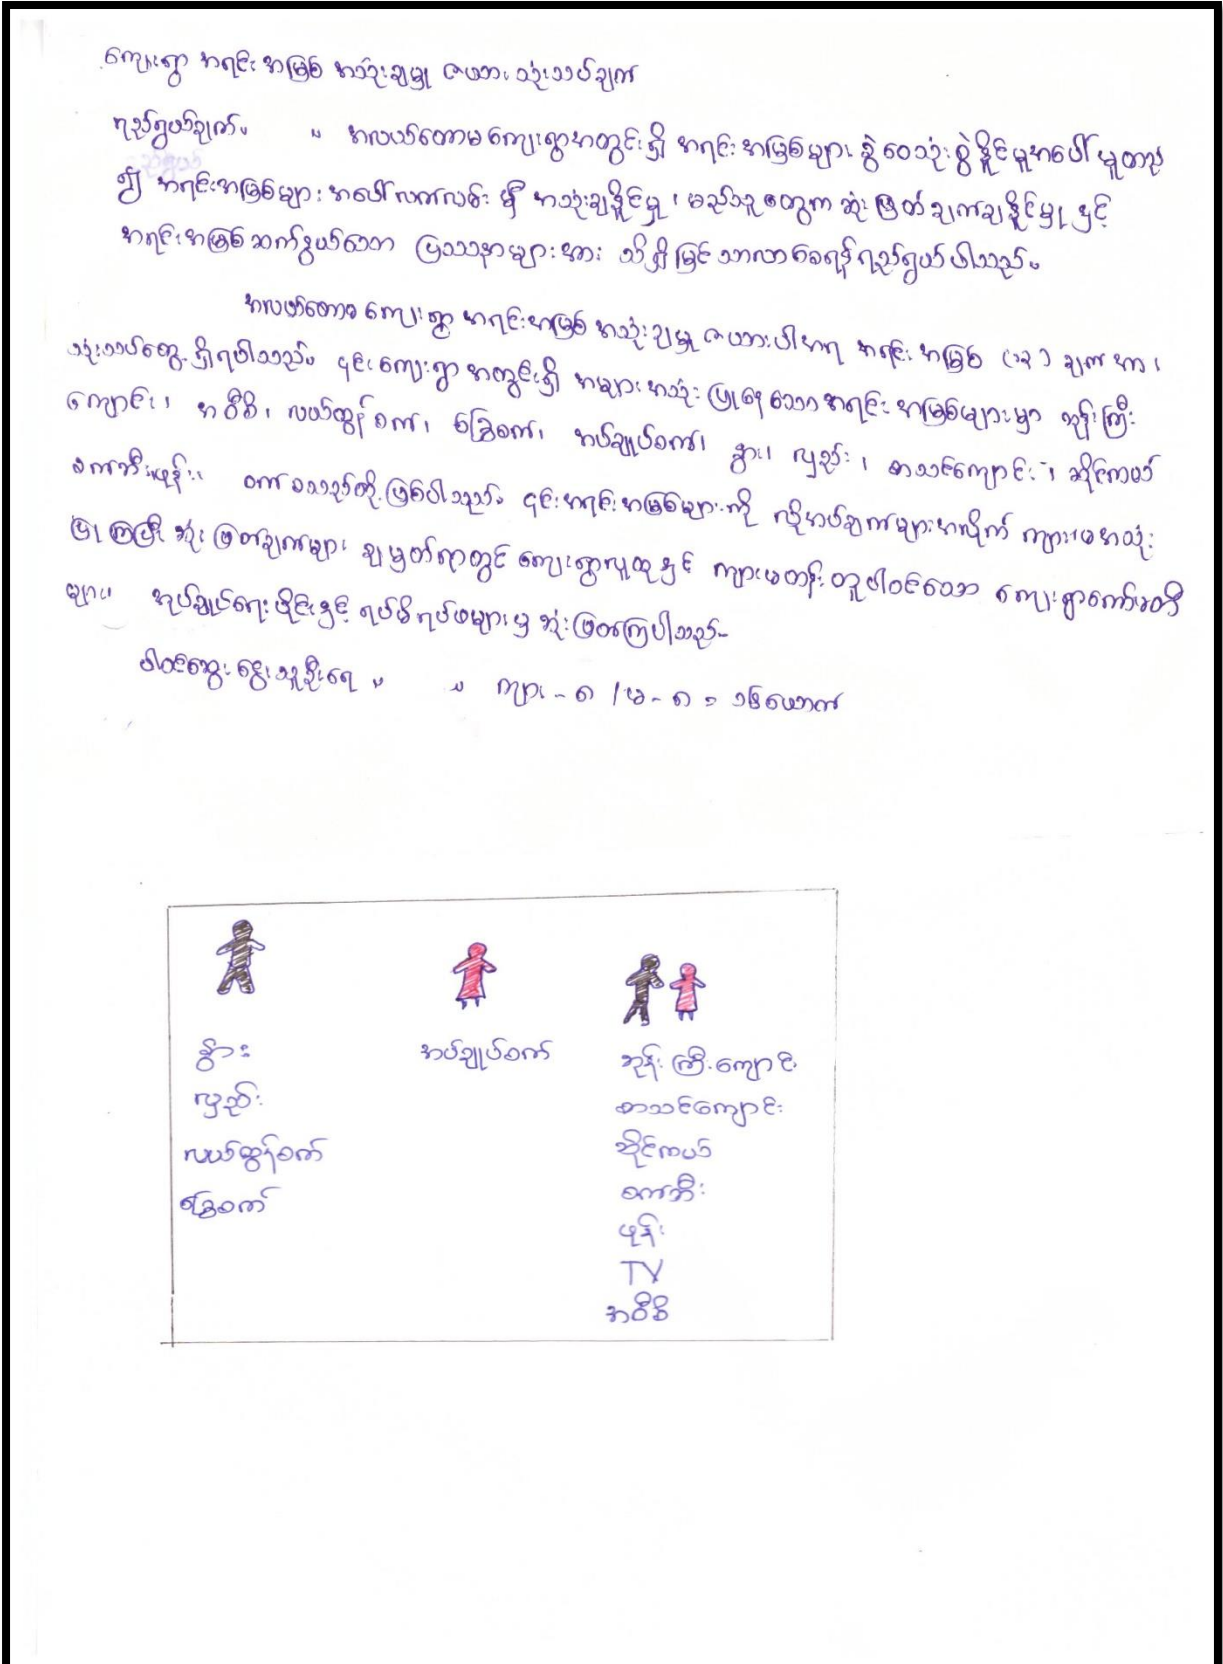 ကျေးရွာ အရင်းအမြစ် အသုံးချမှု ဇယား သုံးသပ်ချက်
ရည်ရွယ်ချက်။ ။ အလယ်တောမကျေးရွာအတွင်းရှိ အရင်းအမြစ်များ ခွဲဝေသုံးစွဲနိုင်မှုအပေါ် မူတည်
၍ အရင်းအမြစ်များအပေါ် လက်လမ်းမှီ အသုံးချနိုင်မှု၊ မည်သူတွေက ဆုံးဖြတ်ချက်ချနိုင်မှု နှင့်
အရင်းအမြစ်ဆက်နွယ်သော ပြဿနာများအား သိရှိမြင်သာလာစေရန်ရည်ရွယ်ပါသည်။
အလယ်တောမကျေးရွာ အရင်းအမြစ် အသုံးချမှု ဇယားပါအရ အရင်းအမြစ် (၁၃) ချက်အား
သုံးသပ်တွေ့ရှိရပါသည်။ ၎င်းကျေးရွာအတွင်းရှိ အများအသုံးပြုနေသောအရင်းအမြစ်များမှာ ဘုန်းကြီး
ကျောင်း၊ အဝီစိ၊ လယ်ထွန်စက်၊ ခြွေစက်၊ အပ်ချုပ်စက်၊ နွား၊ လှည်း၊ စာသင်ကျောင်း၊ ဆိုင်ကယ်
စက်ဘီး၊ ဖုန်း၊ စသည်တို့ဖြစ်ပါသည်။ ၎င်းအရင်းအမြစ်များကို လိုအပ်ချက်များအလိုက် ကျား၊မအသုံး
ပြုကြပြီး ဆုံးဖြတ်ချက်များ ချမှတ်ရာတွင် ကျေးရွာလူထုနှင့် ကျားမတန်းတူပါဝင်သော ကျေးရွာကော်မတီ
များ၊ အုပ်ချုပ်ရေးပိုင်းနှင့် ရပ်မိရပ်ဖများမှ ဆုံးဖြတ်ကြပါသည်-
ပါဝင်ဆွေးနွေးသူဦးရေ ။ ။ ကျား - ၈ / မ - ၈ = ၁၆ယောက်
နွား အပ်ချုပ်စက် ဘုန်းကြီးကျောင်း
လှည်း စာသင်ကျောင်း
လယ်ထွန်စက် ဆိုင်ကယ်
ခြွေစက် စက်ဘီး
ဖုန်း
TV
အဝီစိ